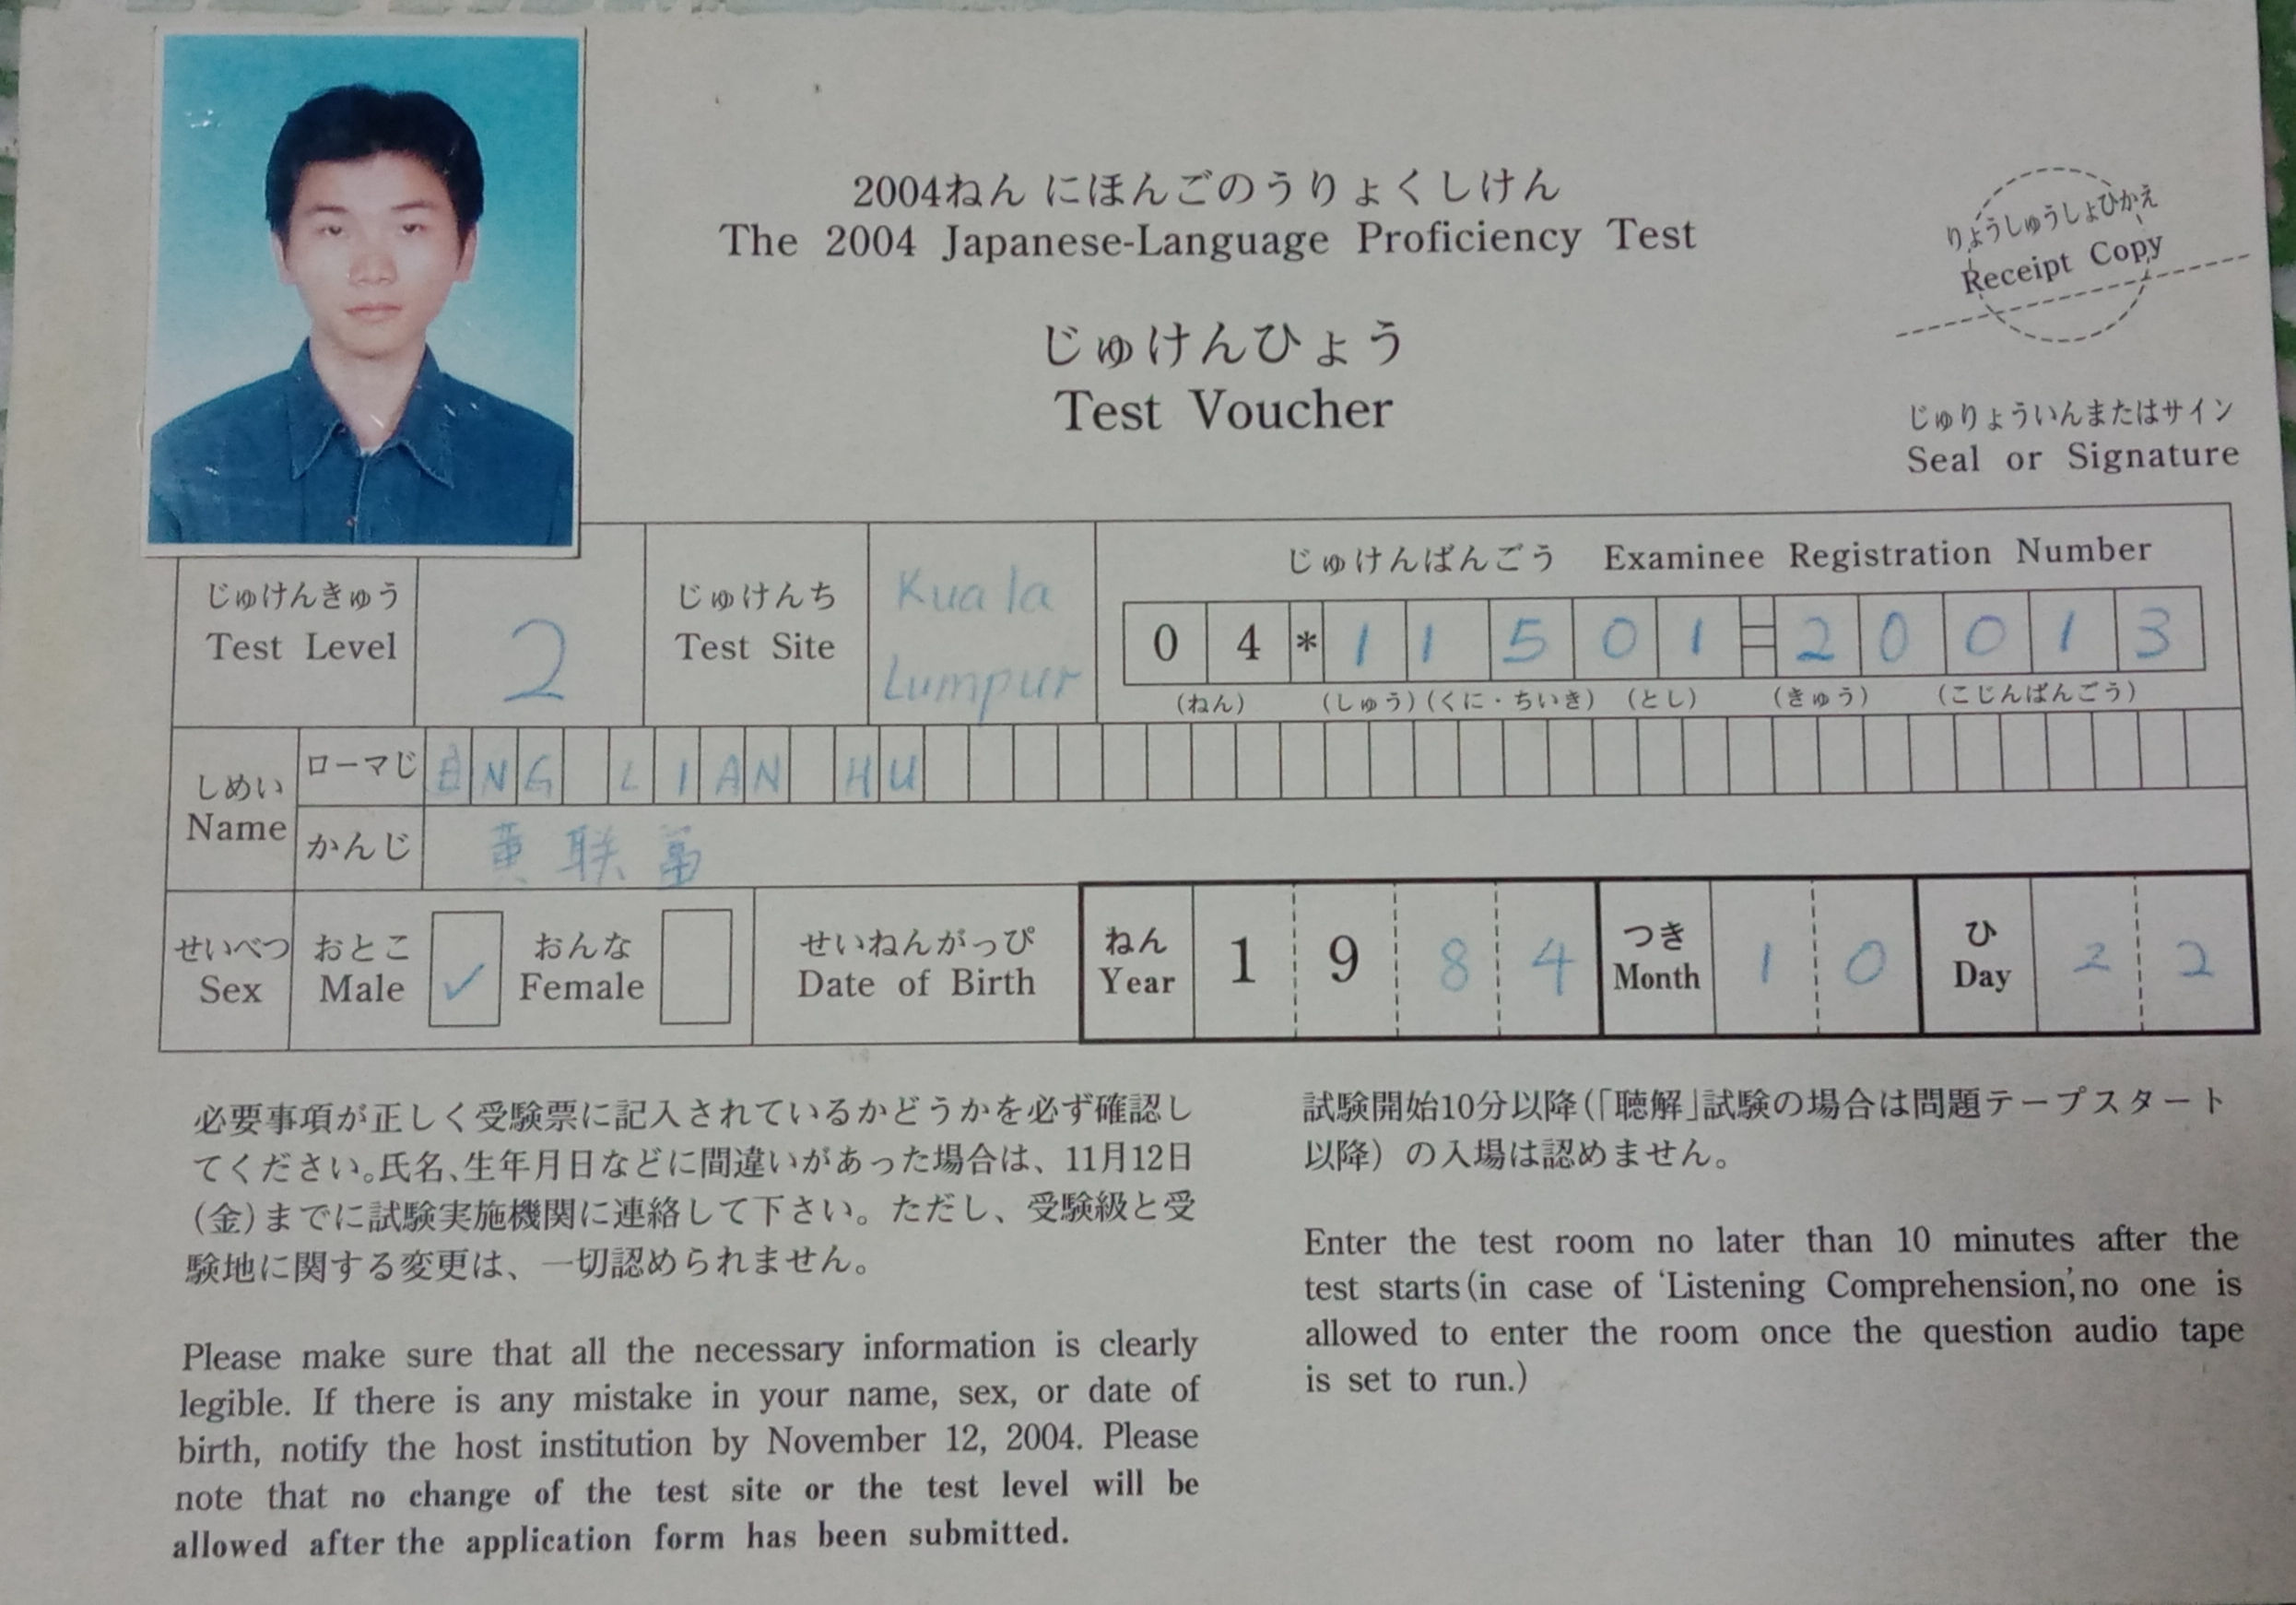 2004ねん にほんごのうりょくしけん
The 2004 Japanese-Language Proficiency Test
りょうしゅうしょひかえ
Receipt Copy
じゅけんひょう
Test Voucher
じゅりょういんまたはサイン
Seal or Signature
じゅけんきゅう
Test Level
2
じゅけんち
Test Site
Kuala
Lumpur
じゅけんばんごう Examinee Registration Number
0 4 * 1 1 5 0 1 = 2 0 0 1 3
(ねん) (しゅう) (くに・ちいき) (とし) (きゅう) (こじんばんごう)
しめい
Name
ローマじ
ENG LIAN HU
かんじ
黄联富
せいべつ
Sex
おとこ
Male
✓
おんな
Female
せいねんがっぴ
Date of Birth
ねん
Year
1 9 8 4
つき
Month
1 0
ひ
Day
2 2
必要事項が正しく受験票に記入されているかどうかを必ず確認し
てください。氏名、生年月日などに間違いがあった場合は、11月12日
(金)までに試験実施機関に連絡して下さい。ただし、受験級と受
験地に関する変更は、一切認められません。
Please make sure that all the necessary information is clearly
legible. If there is any mistake in your name, sex, or date of
birth, notify the host institution by November 12, 2004. Please
note that no change of the test site or the test level will be
allowed after the application form has been submitted.
試験開始10分以降(「聴解」試験の場合は問題テープスタート
以降) の入場は認めません。
Enter the test room no later than 10 minutes after the
test starts(in case of ‘Listening Comprehension’,no one is
allowed to enter the room once the question audio tape
is set to run.)